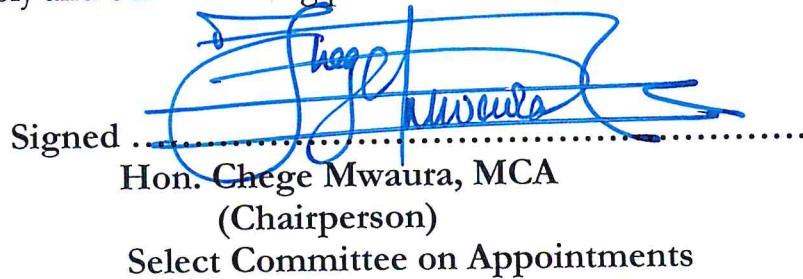 Chege
Mwaura
Signed ................................................................
Hon. Chege Mwaura, MCA
(Chairperson)
Select Committee on Appointments